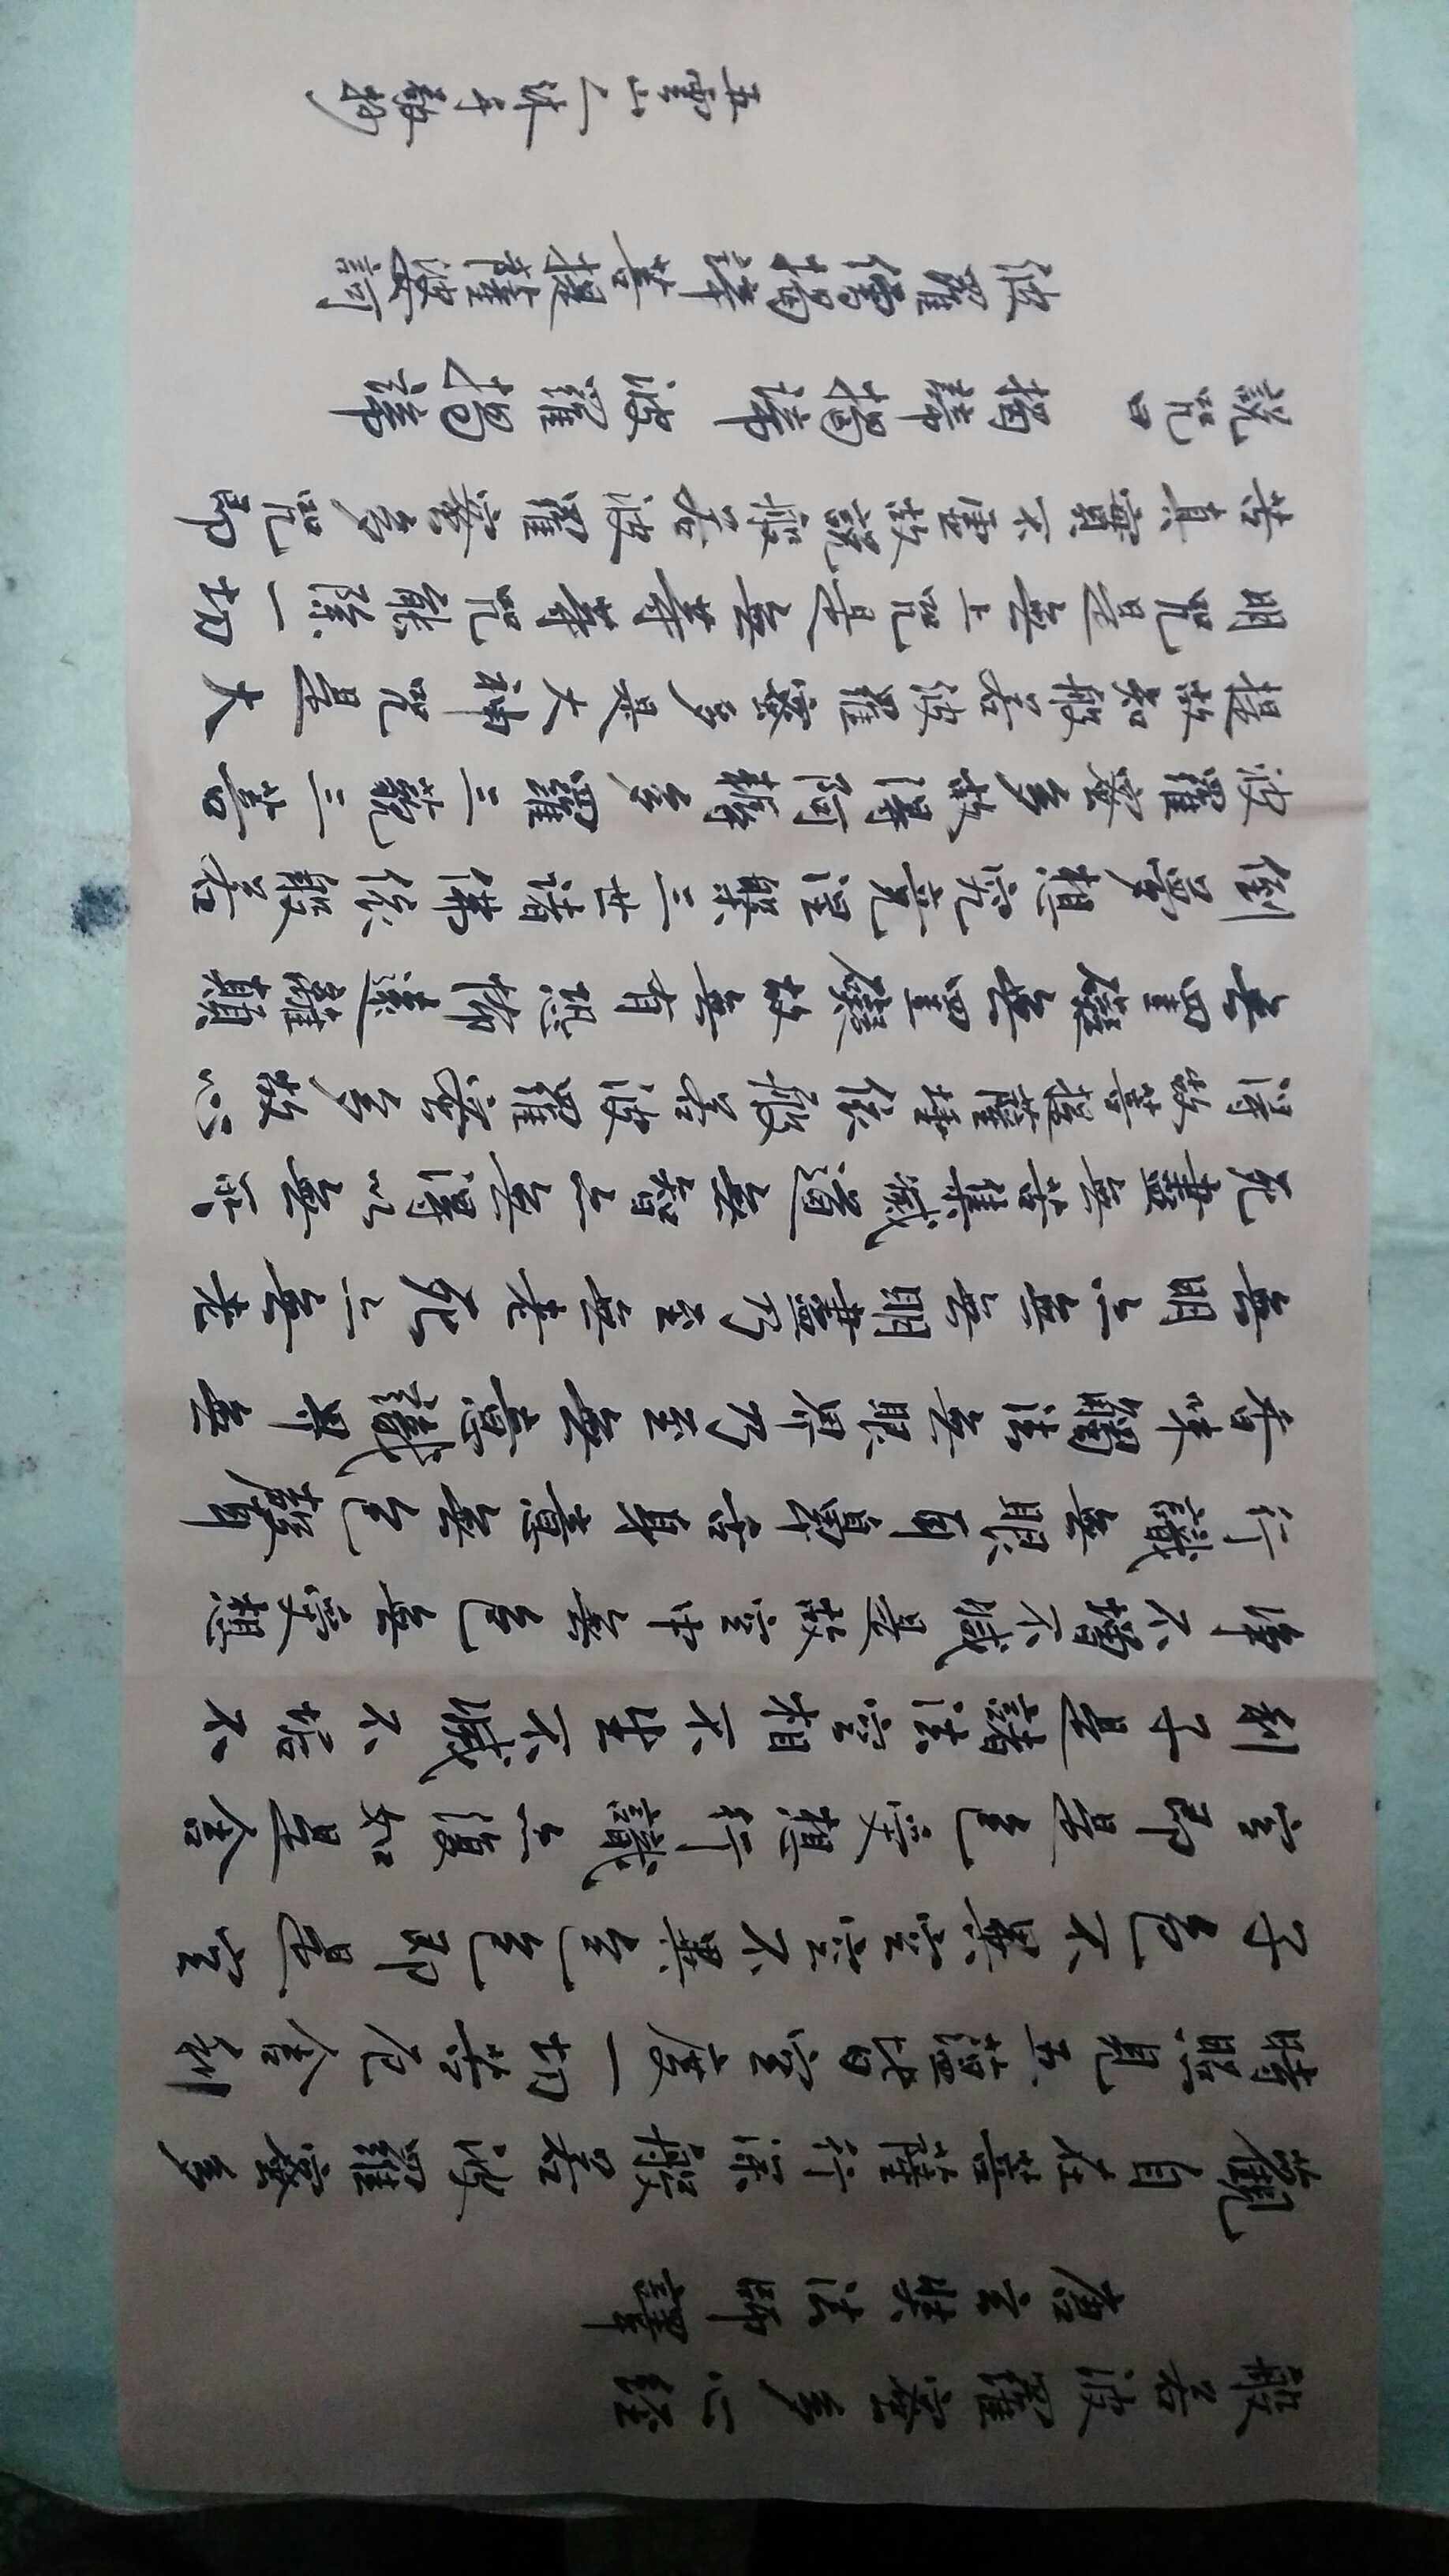 般若波羅蜜多心經
唐玄奘法師譯
觀自在菩薩行深般若波羅蜜多
時照見五蘊皆空度一切苦厄舍利
子色不異空空不異色色即是空
空即是色受想行識亦復如是舍
利子是諸法空相不生不滅不垢不
淨不增不減是故空中無色無受想
行識無眼耳鼻舌身意無色聲
香味觸法無眼界乃至無意識界無
無明亦無無明盡乃至無老死亦無老
死盡無苦集滅道無智亦無得以無所
得故菩提薩埵依般若波羅蜜多故心
無罣礙無罣礙故無有恐怖遠離顛
倒夢想究竟涅槃三世諸佛依般若
波羅蜜多故得阿耨多羅三藐三菩
提故知般若波羅蜜多是大神咒是大
明咒是無上咒是無等等咒能除一切
苦真實不虛故說般若波羅蜜多咒即
說咒曰 揭諦揭諦 波羅揭諦
波羅僧揭諦菩提薩婆訶
五雲山人許平敬抄